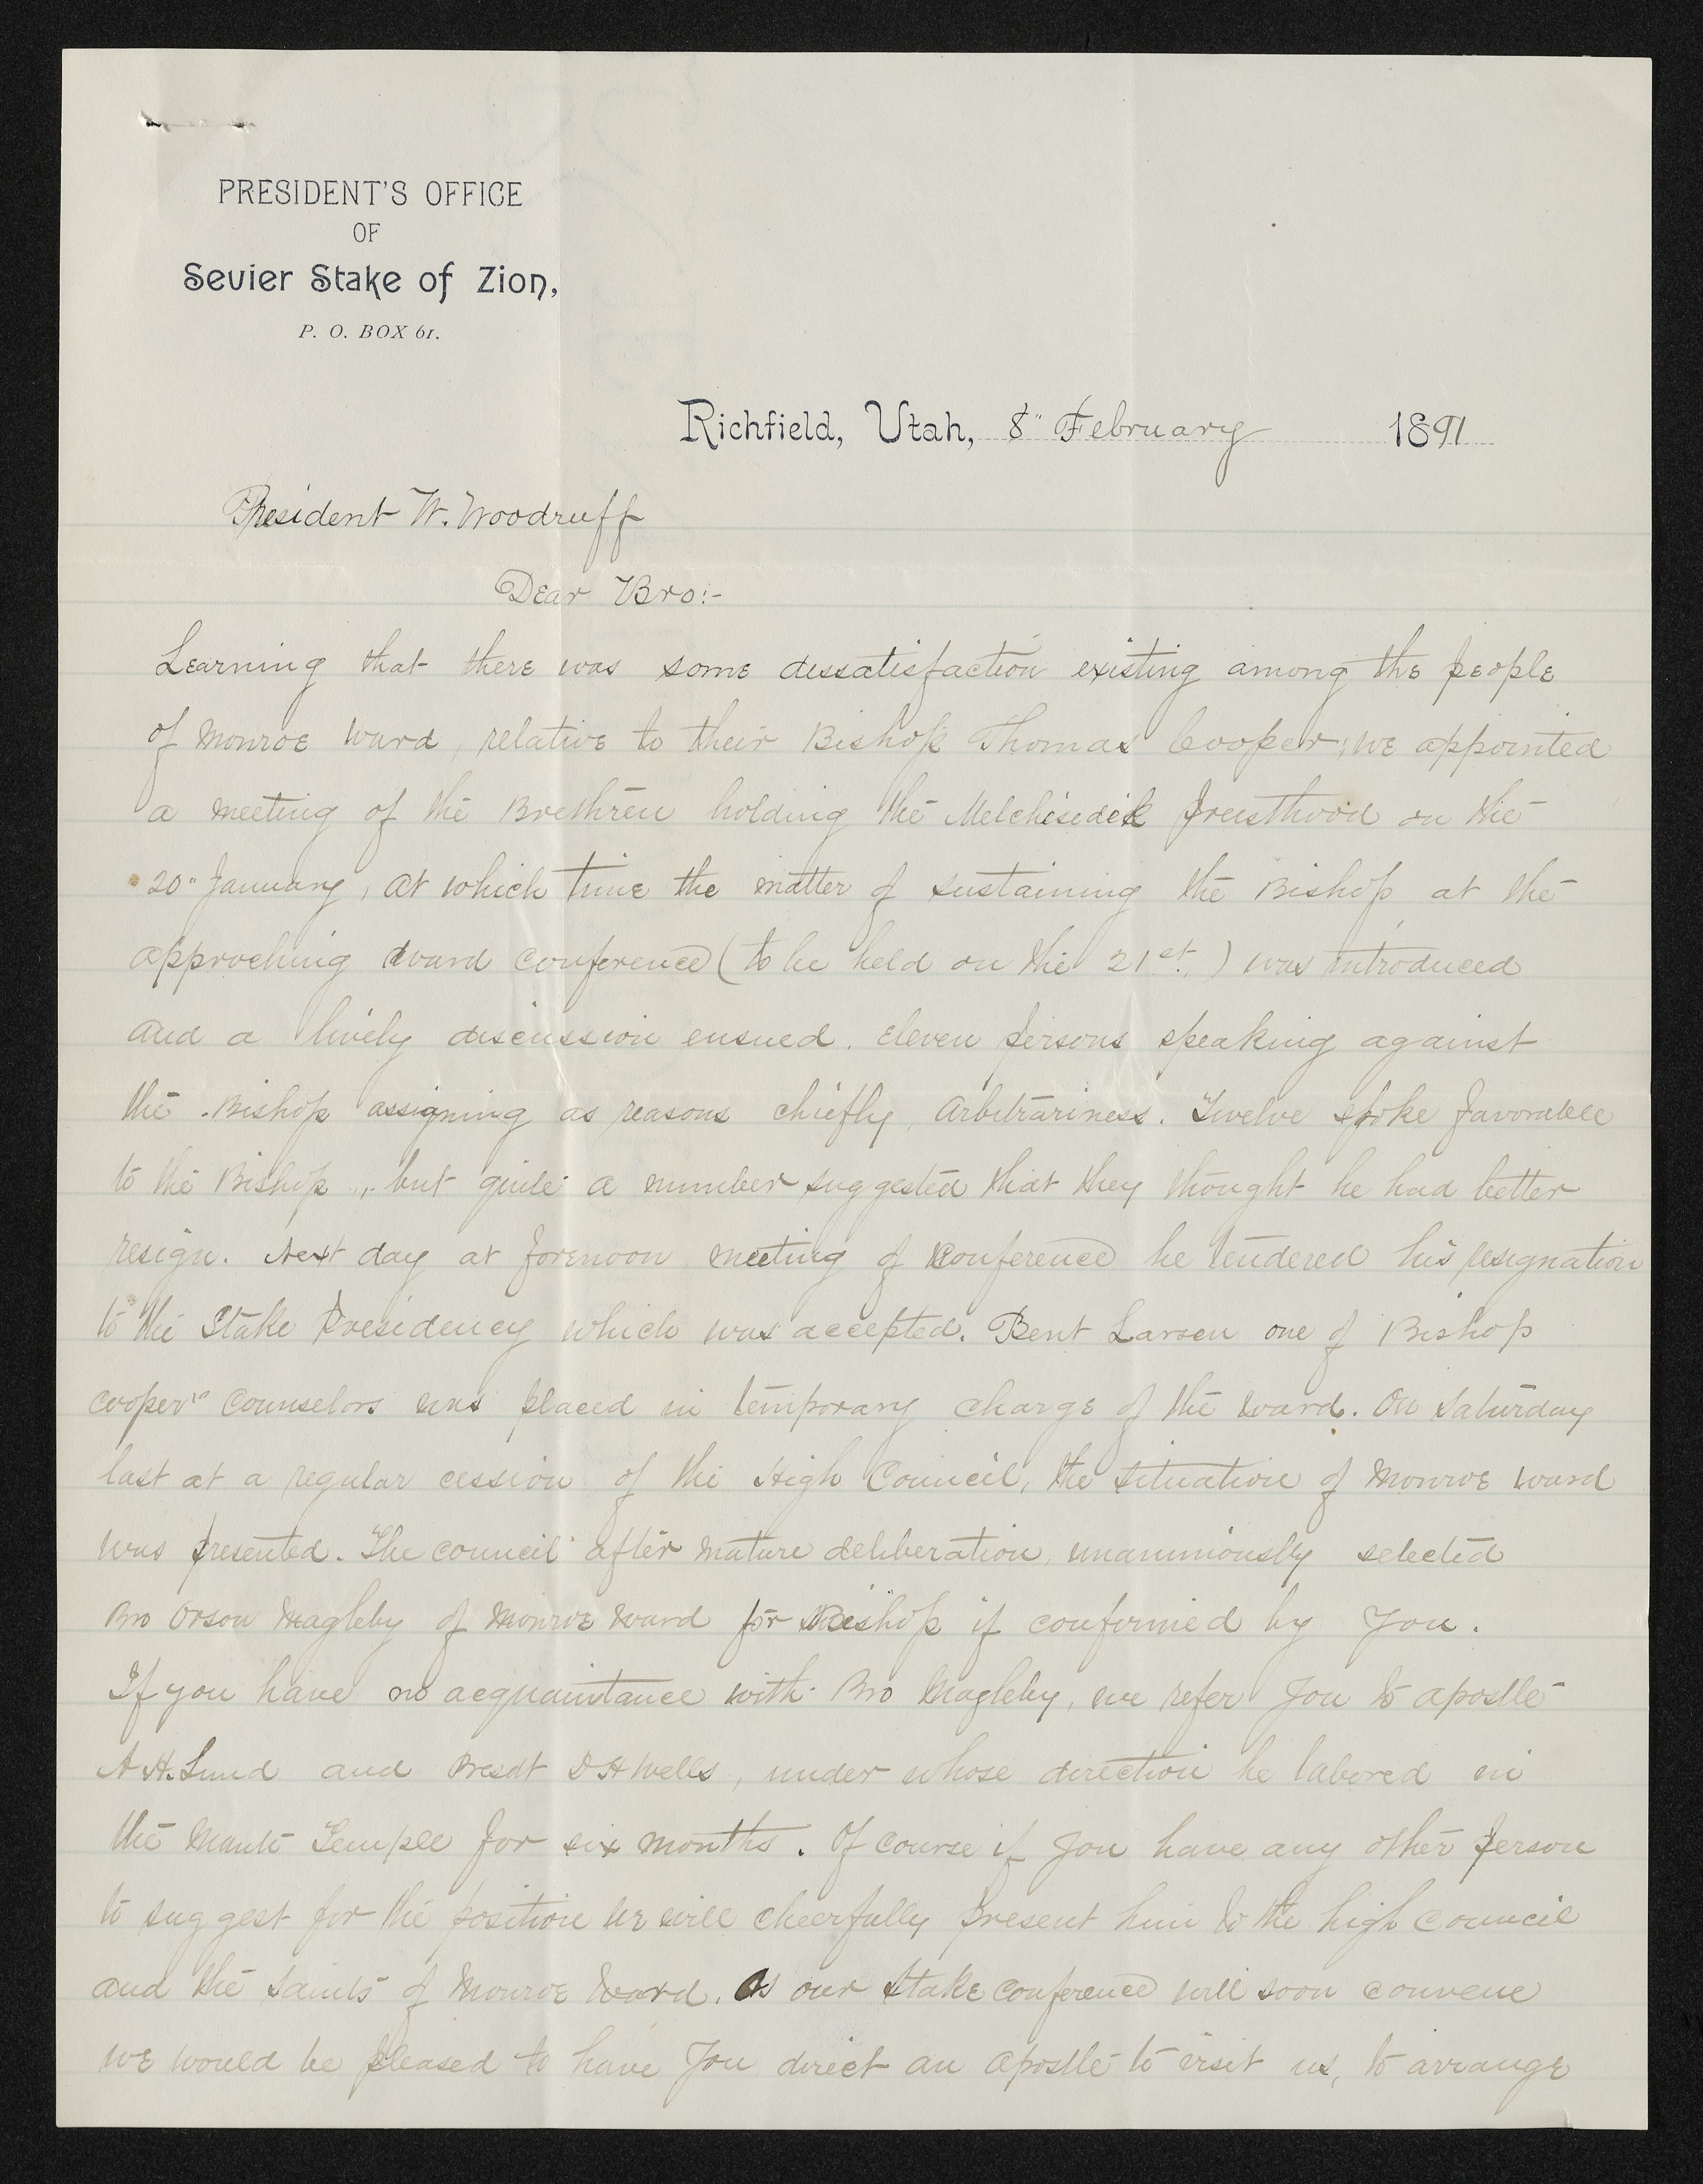 PRESIDENT'S OFFICE
OF
Sevier Stake of Zion,
P. O. BOX 61.
Richfield, Utah, 8" February 1891
President W. Woodruff
Dear Bro:-
Learning that there was some dessatisfaction existing among the people
of Monroe ward, relative to their Bishop Thomas Cooper; we appointed
a meeting of the Brethren holding the Melchisedek Preisthood on the
20" January, at which time the matter of sustaining the Bishop at the
approching ward conference (to be held on the 21st.) was introduced
and a lively discussion ensued. Eleven persons speaking against
the Bishop assigning as reasons chiefly, Arbitrariness. Twelve spoke favorable
to the Bishop, but quite a number suggested that they thought he had better
resign. Next day at forenoon meeting of Conference he tendered his resignation
to the Stake Presidency which was accepted. Bent Larsen one of Bishop
Cooper's Counselors was placed in temporary charge of the ward. On Saturday
last at a regular cession of the High Council, the situation of Monroe ward
was presented. The council after mature deliberation, unanimously selected
Bro Orson Magleby of Monroe Ward for Bishop if confirmed by You.
If you have no acquaintance with Bro Magleby, we refer You to apostle
A H. Lund and Presdt D H Wells, under whose direction he labored in
the Manti Temple for six months. Of course if You have any other person
to suggest for the position we will cheerfully present him to the high council
and the saints of Monroe Ward. As our Stake conference will soon convene
we would be pleased to have You direct an apostle to visit us, to arrange